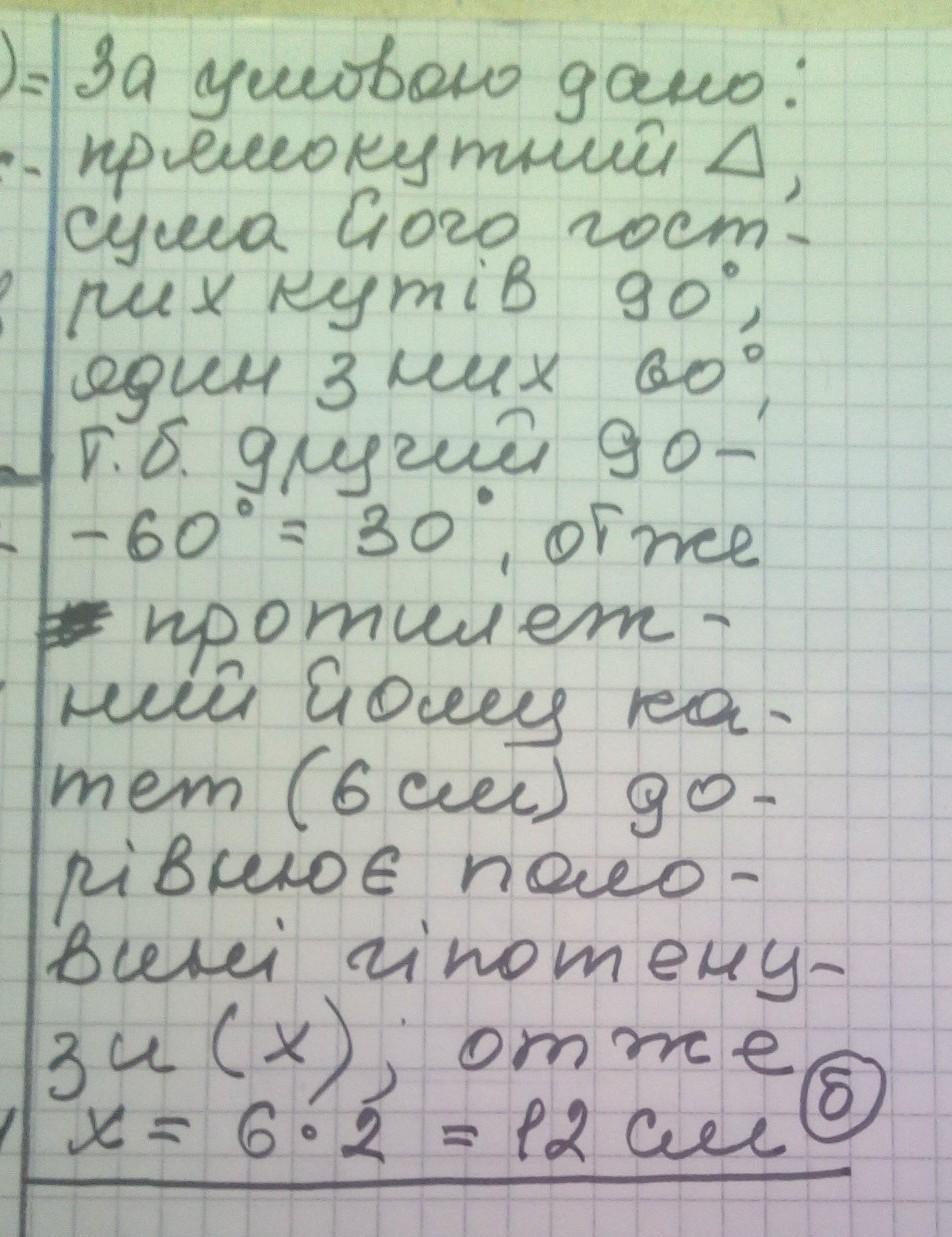 За умовою дано:
прямокутний △,
сума його гост-
рих кутів 90°,
один з них 60°,
т.б. другий 90-
-60° = 30°, отже
протилеж-
ний йому ка-
тет (6 см) до-
рівнює поло-
вині гіпотену-
зи (х), отже
х = 6·2 = 12 см б